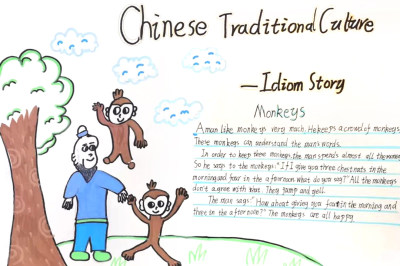 Chinese Traditional Culture
—Idiom Story
Monkeys
A man like monkeys very much. He keeps a crowd of monkeys.
These monkeys can understand the man's words.
In order to keep these monkeys, the man spends almost all the money.
So he says to the monkeys: "If I give you three chestnuts in the
morning and four in the afternoon what do you say?" All the monkeys
don't agree with that. They jump and yell.
The man says: "How about giving you four in the morning and
three in the afternoon?" The monkeys are all happy.